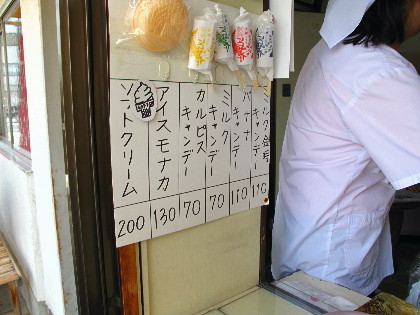 ミルク金時
キャンデー
110
バナナ
キャンデー
110
ミルク
キャンデー
70
カルピス
キャンデー
70
アイスモナカ
130
ソフトクリーム
200